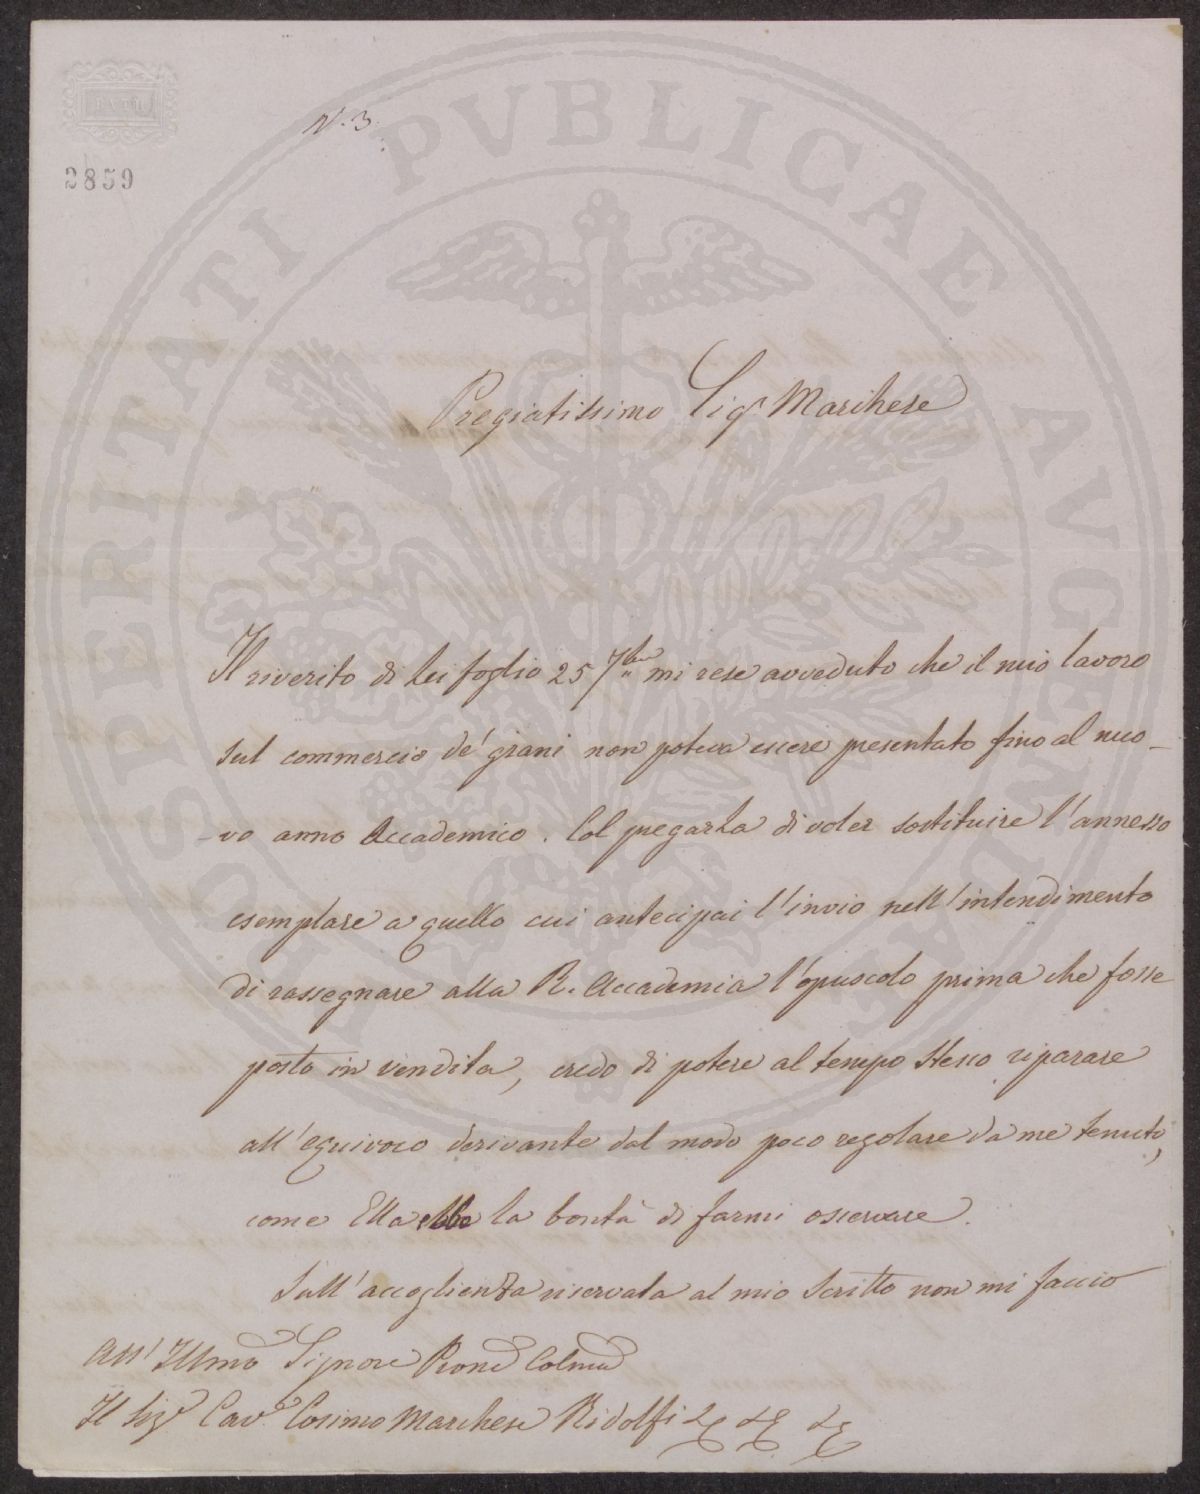 PROSPERITATI PVBLICAE AVGENDAE
BATH
N. 3.
2859
Pregiatissimo Sigr Marchese
Il riverito di Lei foglio 25 7bre mi rese avveduto che il mio lavoro
sul commercio de' grani non poteva essere presentato fino al nuo-
-vo anno Accademico. Col pregarLa di voler sostituire l'annesso
esemplare a quello cui antecipai l'invio nell'intendimento
di rassegnare alla R. Accademia l'opuscolo prima che fosse
posto in vendita, credo di potere al tempo stesso riparare
all'equivoco derivante dal modo poco regolare da me tenuto,
come Ella ebbe la bontà di farmi osservare.
Sull'accoglienza riservata al mio scritto non mi faccio
All' Illmo Signore Prone Colmo
Il Sigr Cavr Cosimo Marchese Ridolfi &c &c &c